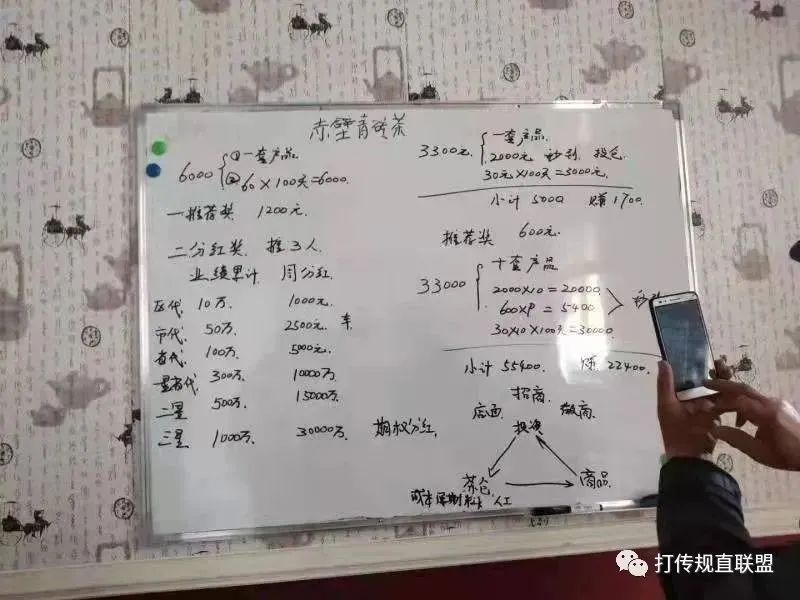 赤壁青砖茶
6000 { ①一套产品
②60×100天=6000.
一推荐奖 1200元.
二分红奖. 推3人
业绩累计 周分红.
区代. 10万. 1000元.
市代. 50万. 2500元. 车.
省代. 100万. 5000元.
一星省代. 300万. 10000万.
二星 500万. 15000万.
三星 1000万. 30000万. 期权分红.
3300元 { 一套产品.
2000元 秒到
30元×100天=3000元.
小计 5000 赚1700.
推荐奖 600元.
33000 { 十套产品
2000×10=20000
600×9=5400
30×10×100天=30000
小计 55400. 22400.
招商
店面 微商.
投资
茶仓 商品.
成本 人工
打传规直联盟